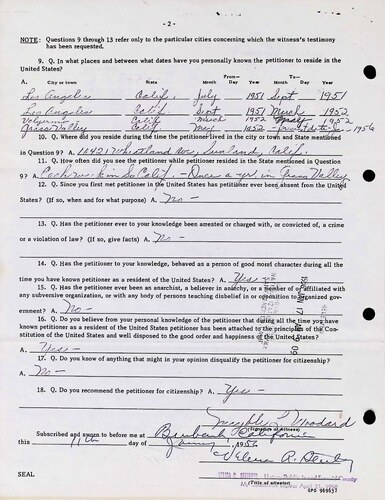 - 2 -
NOTE: Questions 9 through 13 refer only to the particular cities concerning which the witness's testimony
has been requested.
9. Q. In what places and between what dates have you personally known the petitioner to reside in the
United States?
From— To—
A. City or town State Month Day Year Month Day Year
Los Angeles Calif. July 1951 Sept 1951
Los Angeles Calif. Sept 1951 March 1952
Calif March 1952 May 1952
Grass Valley Calif. May 1952 - present date - Jan - 1956
10. Q. Where did you reside during the time the petitioner lived in the city or town and State mentioned
in Question 9? A. 10421 Wheatland Ave, Sunland, Calif.
11. Q. How often did you see the petitioner while petitioner resided in the State mentioned in Question
9? A. Each week in So Calif. - Once a yr in Grass Valley
12. Q. Since you first met petitioner in the United States has petitioner ever been absent from the United
States? (If so, when and for what purpose) A. No -
13. Q. Has the petitioner ever to your knowledge been arrested or charged with, or convicted of, a crime
or a violation of law? (If so, give facts) A. No -
14. Q. Has the petitioner to your knowledge, behaved as a person of good moral character during all the
time you have known petitioner as a resident of the United States? A. Yes -
15. Q. Has the petitioner ever been an anarchist, a believer in anarchy, or a member of or affiliated with
any subversive organization, or with any body of persons teaching disbelief in or opposition to organized gov-
ernment? A. No -
16. Q. Do you believe from your personal knowledge of the petitioner that during all the time you have
known petitioner as a resident of the United States petitioner has been attached to the principles of the Con-
stitution of the United States and well disposed to the good order and happiness of the United States?
A. Yes -
17. Q. Do you know of anything that might in your opinion disqualify the petitioner for citizenship?
A. No -
18. Q. Do you recommend the petitioner for citizenship? A. Yes -
(Signature of witness)
Subscribed and sworn to before me at Burbank California
this 11th day of January, 1956
(Title of attestor)
SEAL
GPO 989657